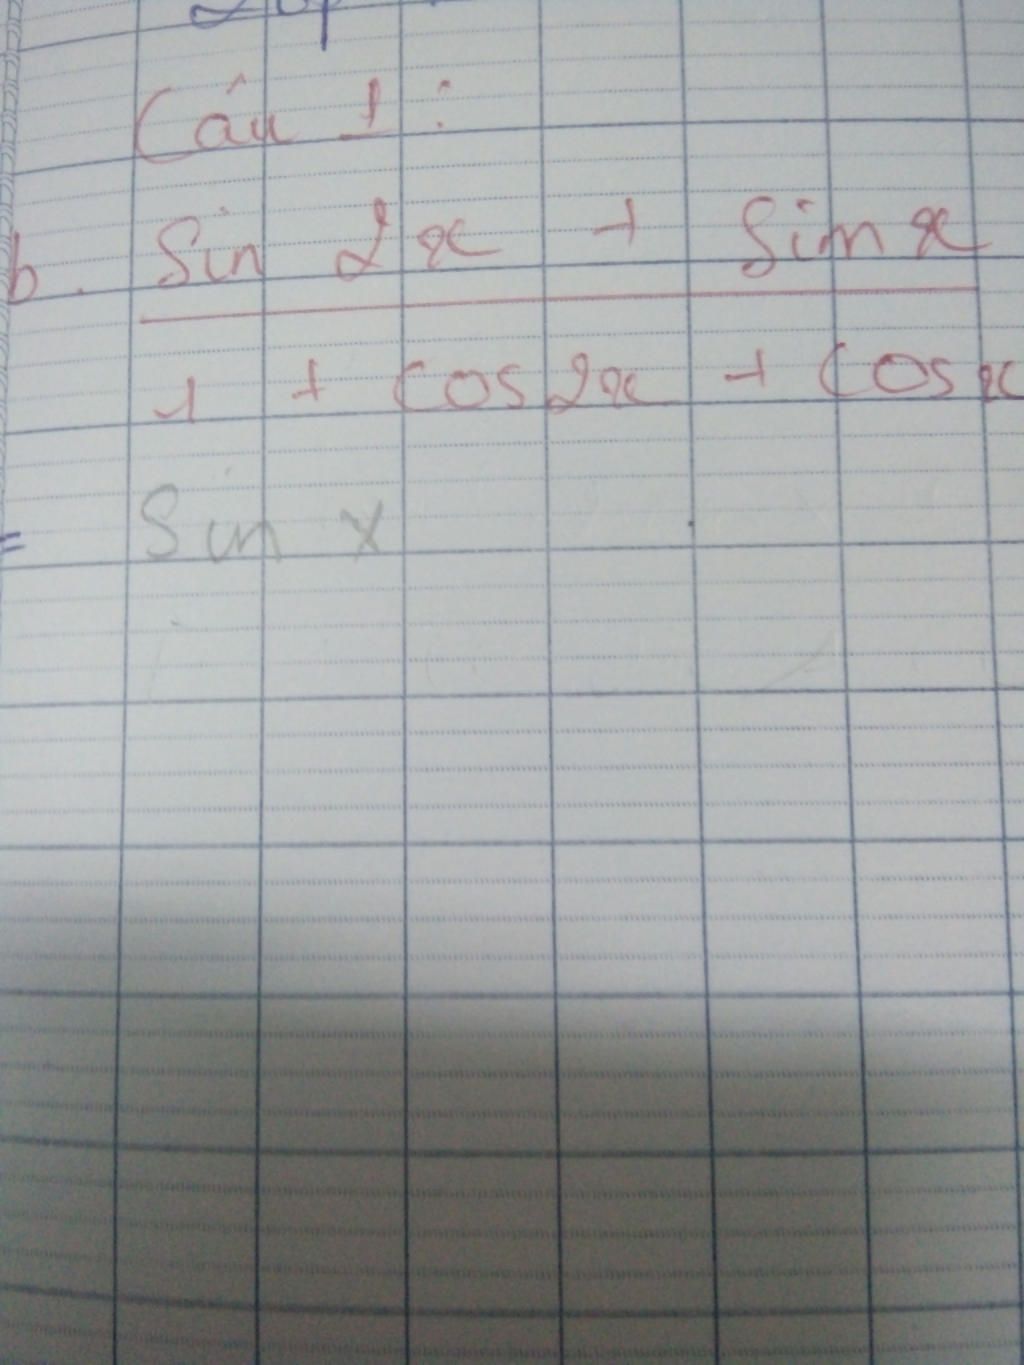 Câu 1:
b. Sin 2x + Sin x
1 + cos 2x + cos x
= Sin x